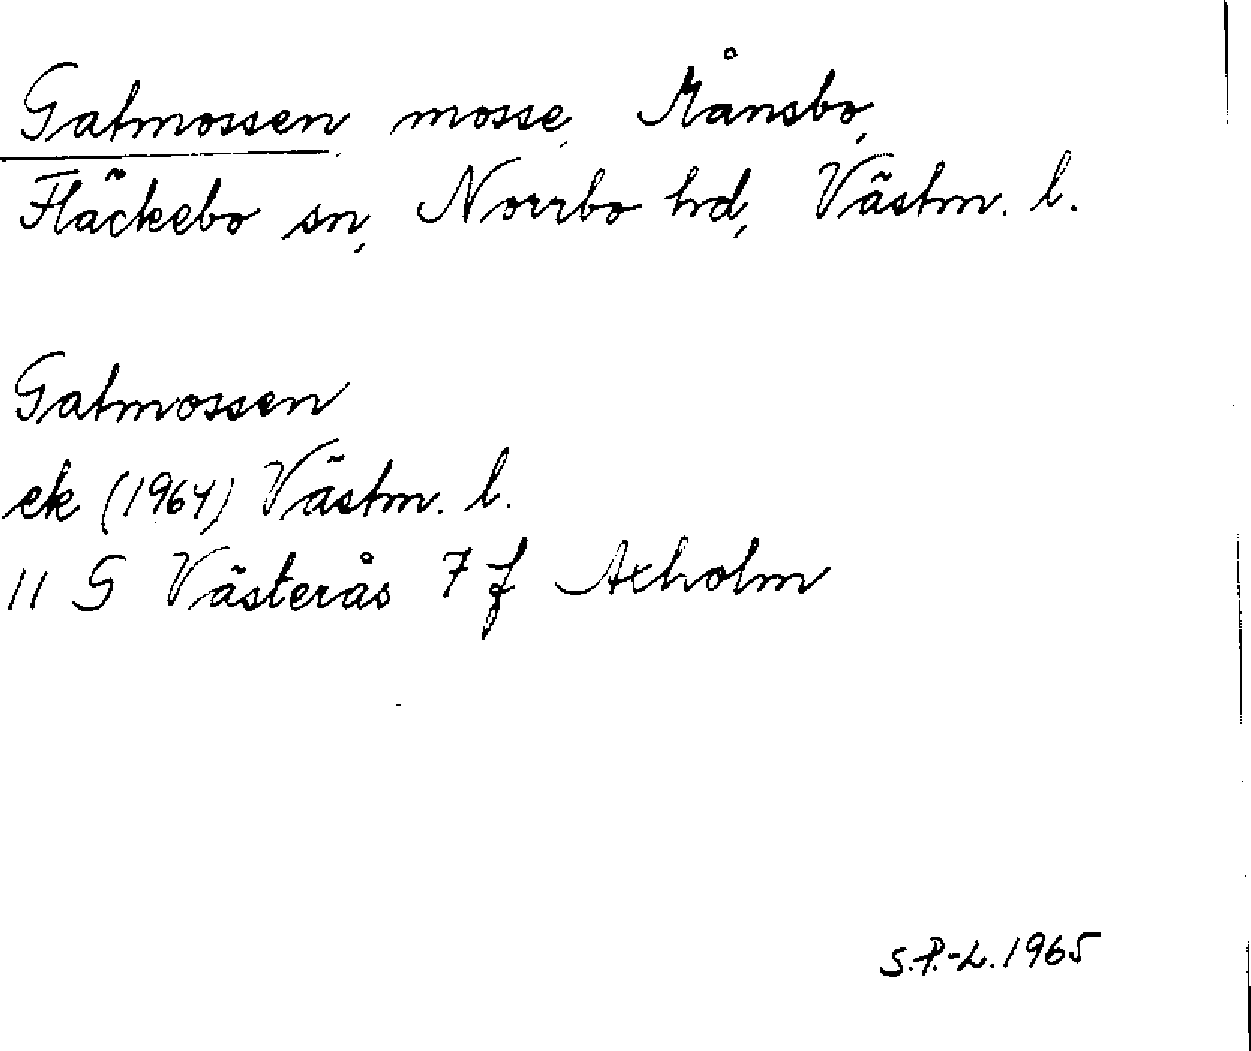 Gatmossen mosse, Månsbo,
Fläckebo sn, Norrbo hd, Västm. l.
Gatmossen
ek (1964) Västm. l.
11 G Västerås 7 f Axholm
S.P.-L. 1965